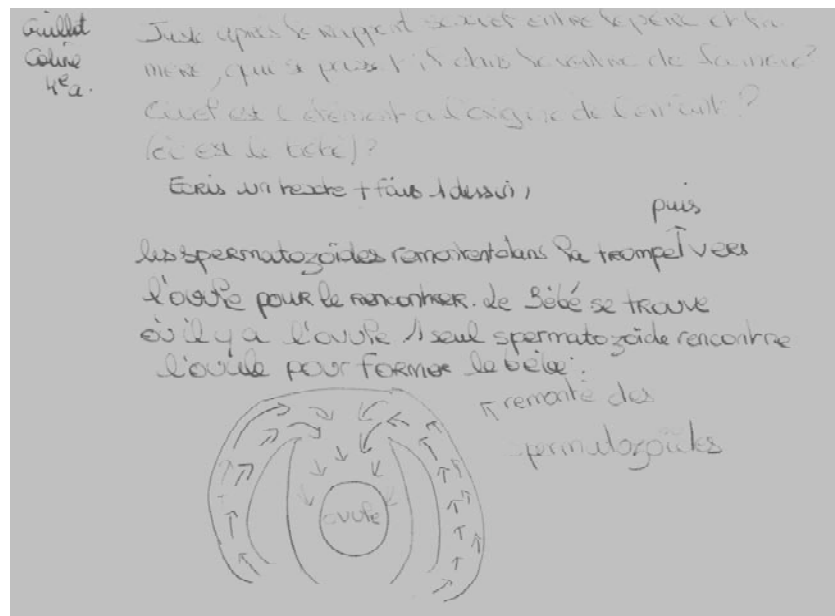 Guillot
Coline
4e a.
Juste après le rapport sexuel entre le père et la
mère, que se passe t'il dans le ventre de la mère?
Quel est l'élément a l'origine de l'enfant?
le bébé)?
Ecris un texte + fais 1 dessin,
puis
les spermatozoïdes remontent dans la trompe ↑ vers
l'ovule pour le rencontrer. Le Bébé se trouve
où il y a l'ovule 1 seul spermatozoide rencontre
l'ovule pour former le bébé.
↑ remonté des
spermatozoïdes
ovule